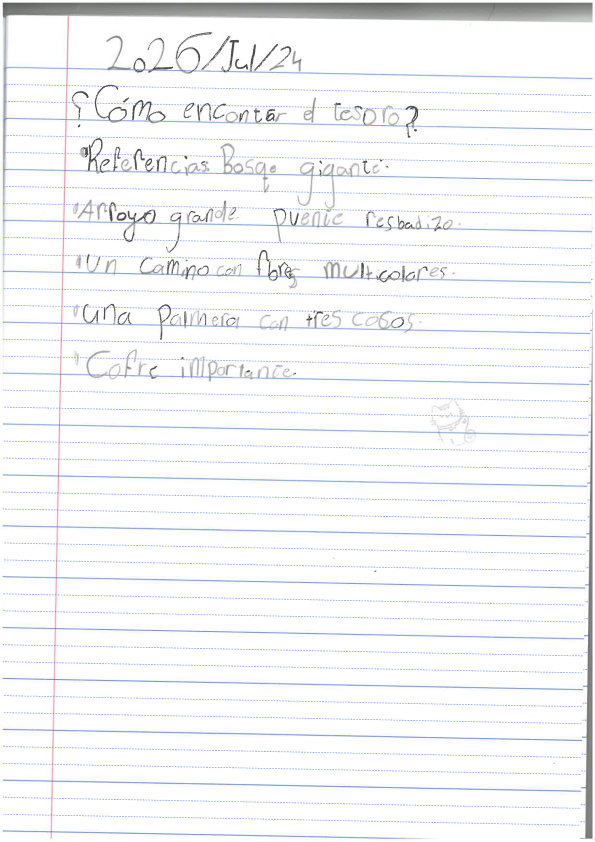 2026/Jul/24
¿Cómo encontar el tesoro?
•Referencias Bosqe gigante.
•Arroyo grande. puente resbadizo.
•Un camino con flores multicolares.
•una palmera con tres cocos.
•Cofre importante.